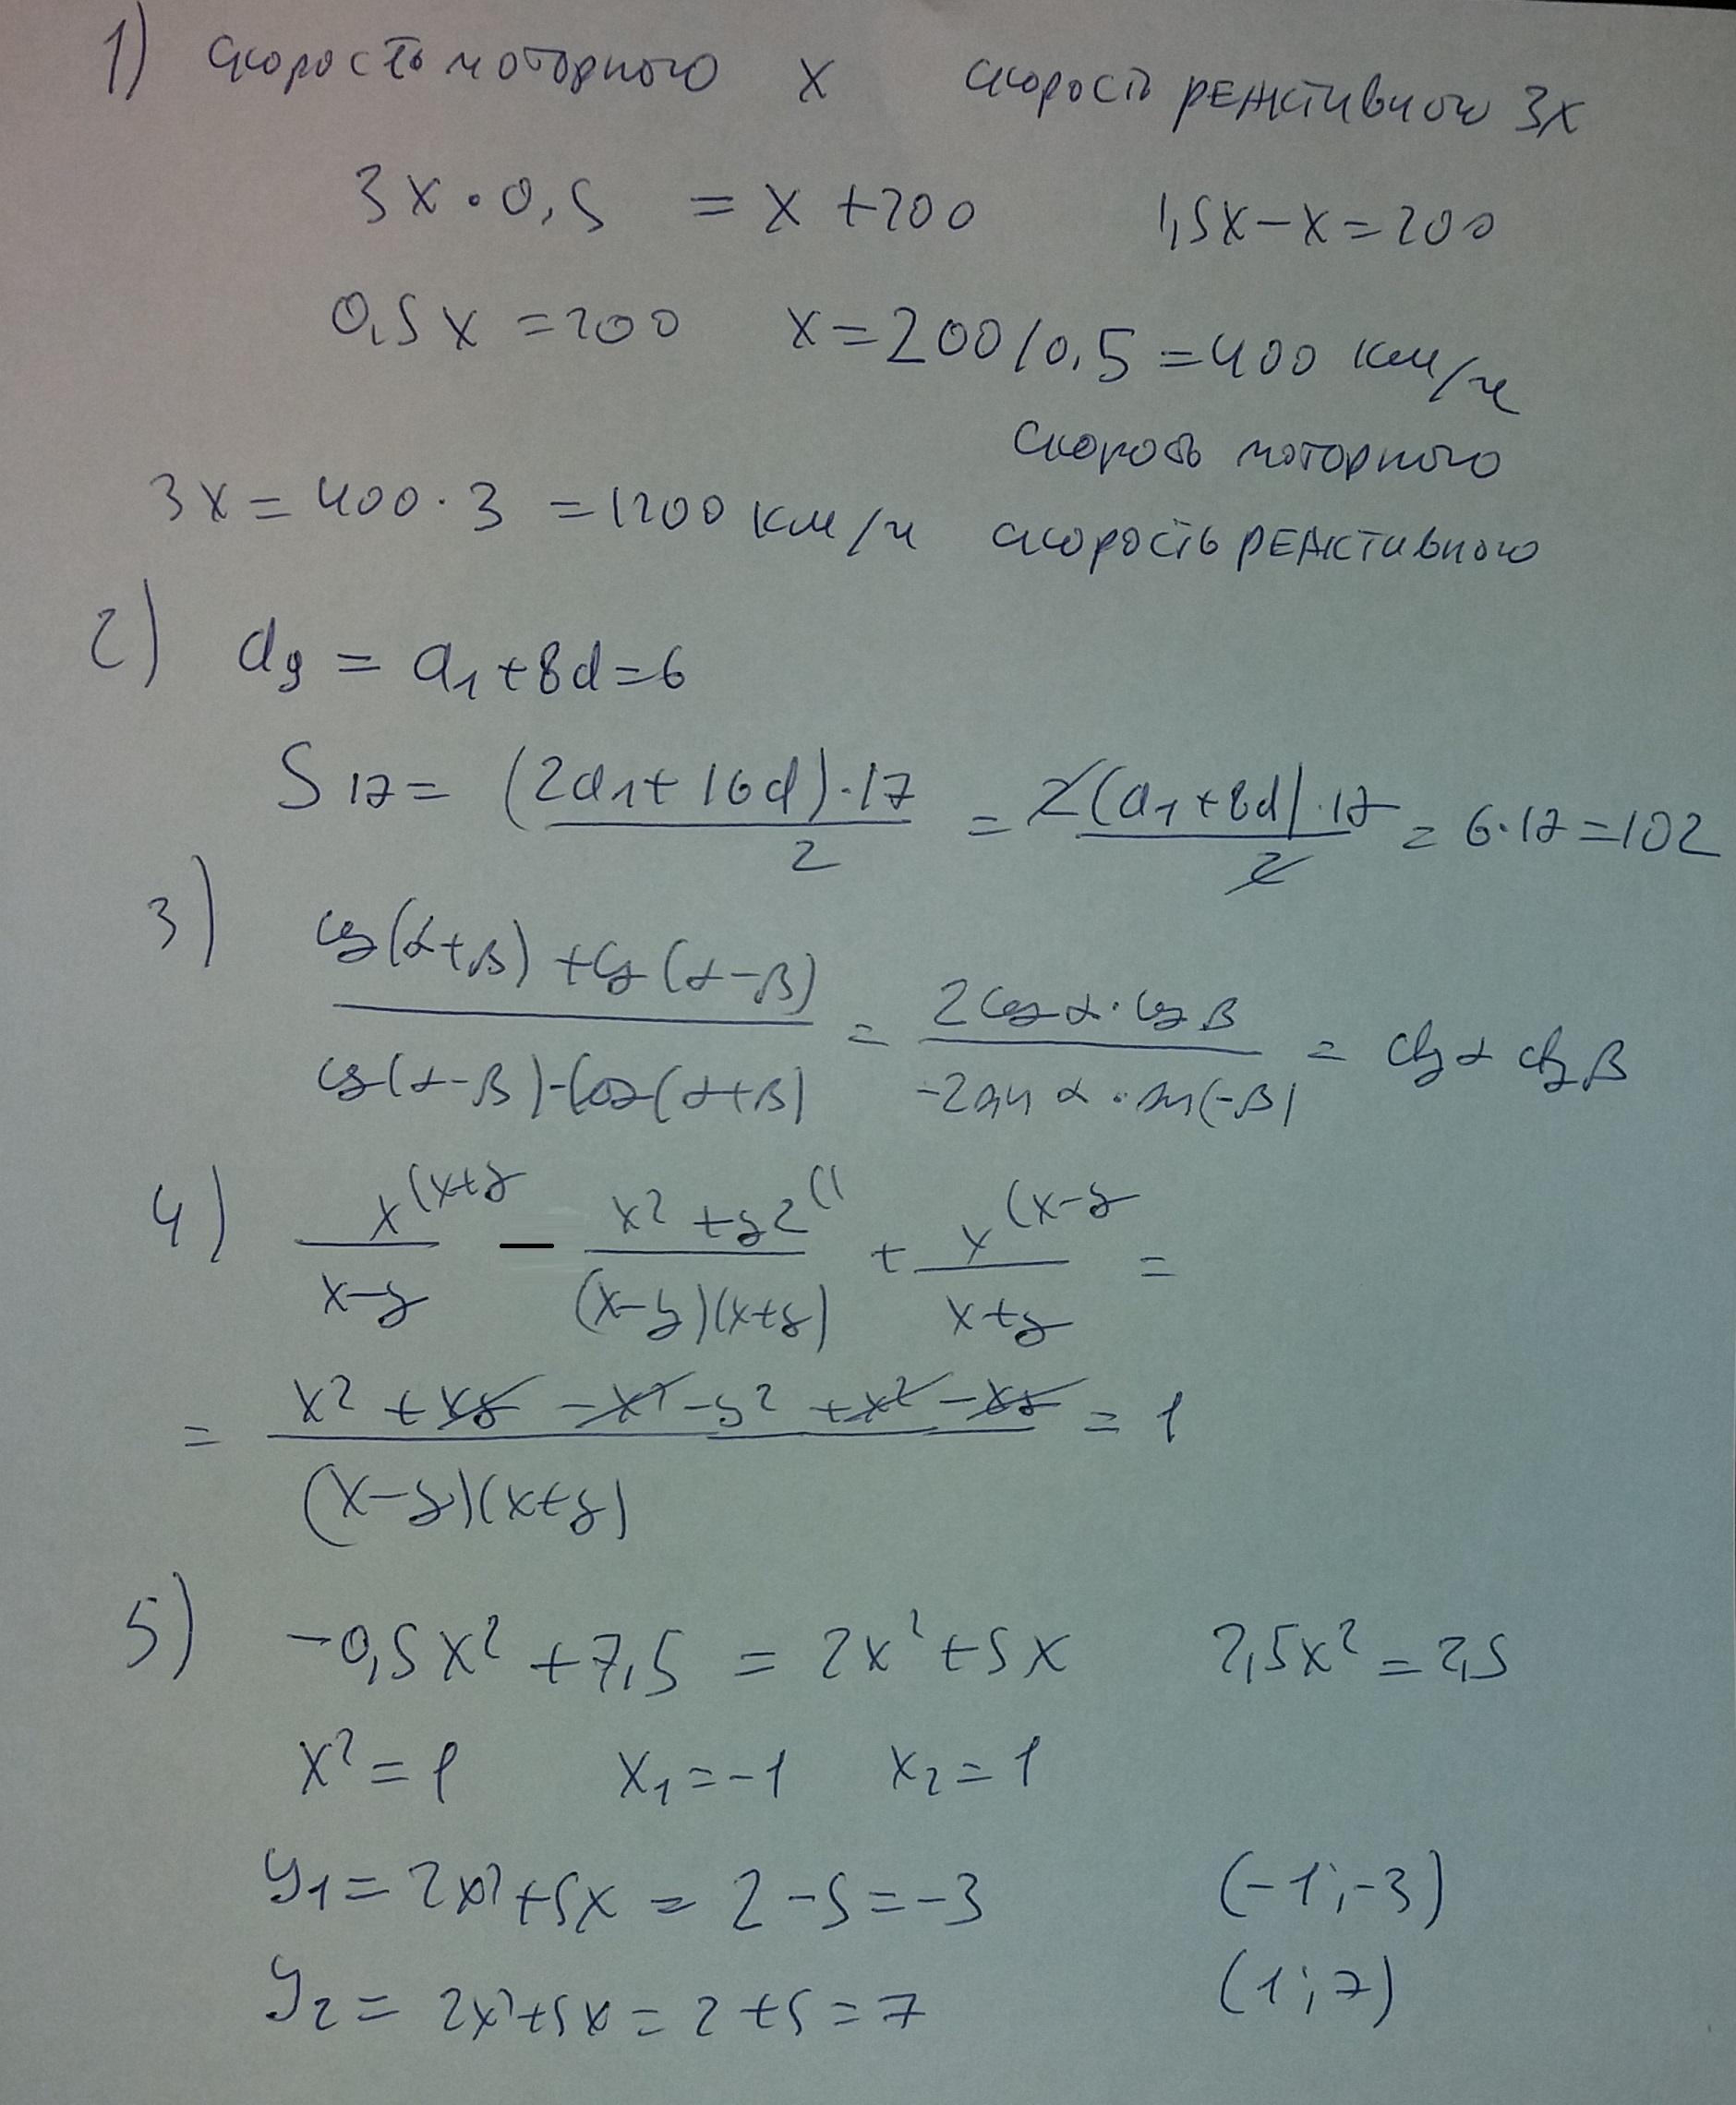 1) скорость моторного x скорость реактивного 3x
3x·0,5 = x+200 1,5x-x=200
0,5x=200 x=200/0,5=400 км/ч
скорость моторного
3x=400·3=1200 км/ч скорость реактивного
2) a₉=a₁+8d=6
S₁₇= (2a₁+16d)·17/2 = 2(a₁+8d)·17/2 = 6·17=102
3) cos(α+β)+cos(α-β)/cos(α-β)-cos(α+β) = 2cosα·cosβ/-2sinα·sin(-β) = ctgα ctgβ
4) x(x+y/x-y − x²+y²(1/(x-y)(x+y) + x(x-y/x+y =
= x²+xy-x²-y²+x²-xy/(x-y)(x+y) = 1
5) -0,5x²+7,5 = 2x²+5x 2,5x²=2,5
x²=1 x₁=-1 x₂=1
y₁=2x²+5x=2-5=-3 (-1;-3)
y₂=2x²+5x=2+5=7 (1;7)